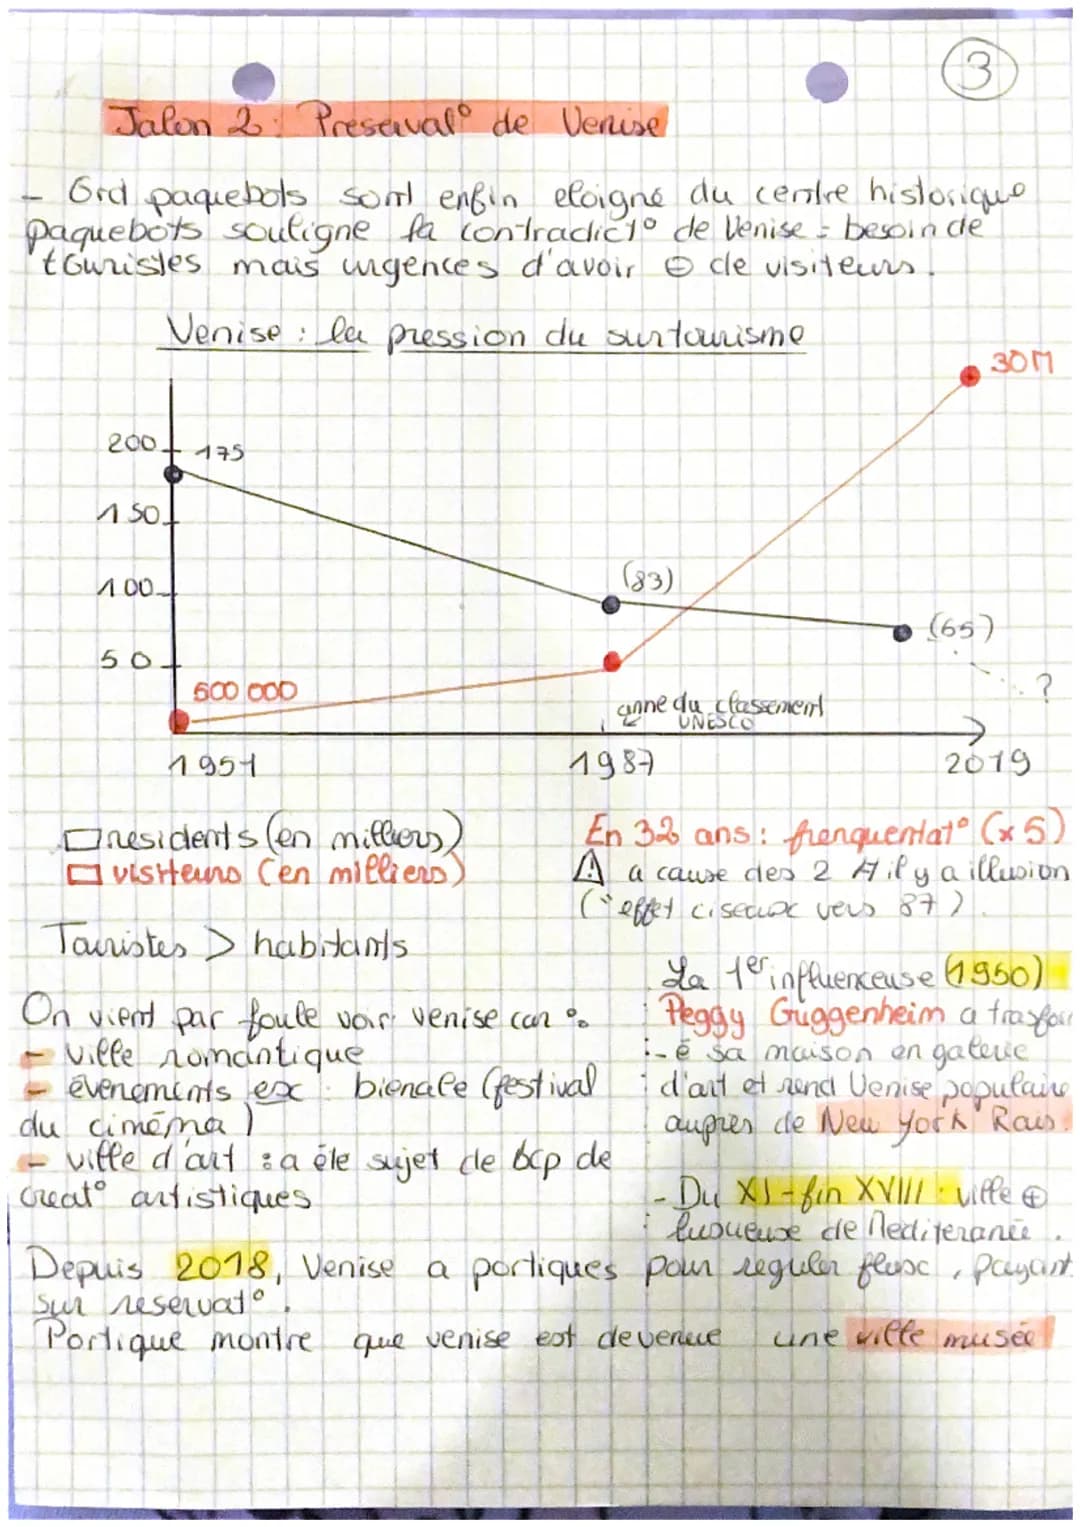 3
Jalon 2: Preservat° de Venise
- Grd paquebots sont enfin eloigné du centre historique
paquebots souligne la contradict° de Venise = besoin de
touristes mais urgences d'avoir ⊖ de visiteurs.
Venise : la pression du surtourisme
30M
200
175
150
100
(83)
(65)
50
500 000
?
anne du classement
UNESCO
1951
1987
2019
residents (en milliers)
visiteurs (en milliers)
En 32 ans : frenquentat° (x5)
⚠ a cause des 2 il y a illusion
("effet ciseaux vers 87)
Touristes > habitants
La 1er influenceuse (1950)
Peggy Guggenheim a trasfor
-é sa maison en galerie
d'art et rend Venise populaire
aupres de New York Rais.
On vient par foule voir venise car :
- ville romantique
- évenements ex : bienale (festival
du cinéma)
- ville d'art : a éte sujet de bcp de
creat° artistiques
- Du XI - fin XVIII : ville ⊕
luxueuse de Mediteranée.
Depuis 2018, Venise a portiques pour reguler flux, payant
sur reservat°.
Portique montre que venise est devenue une ville musée